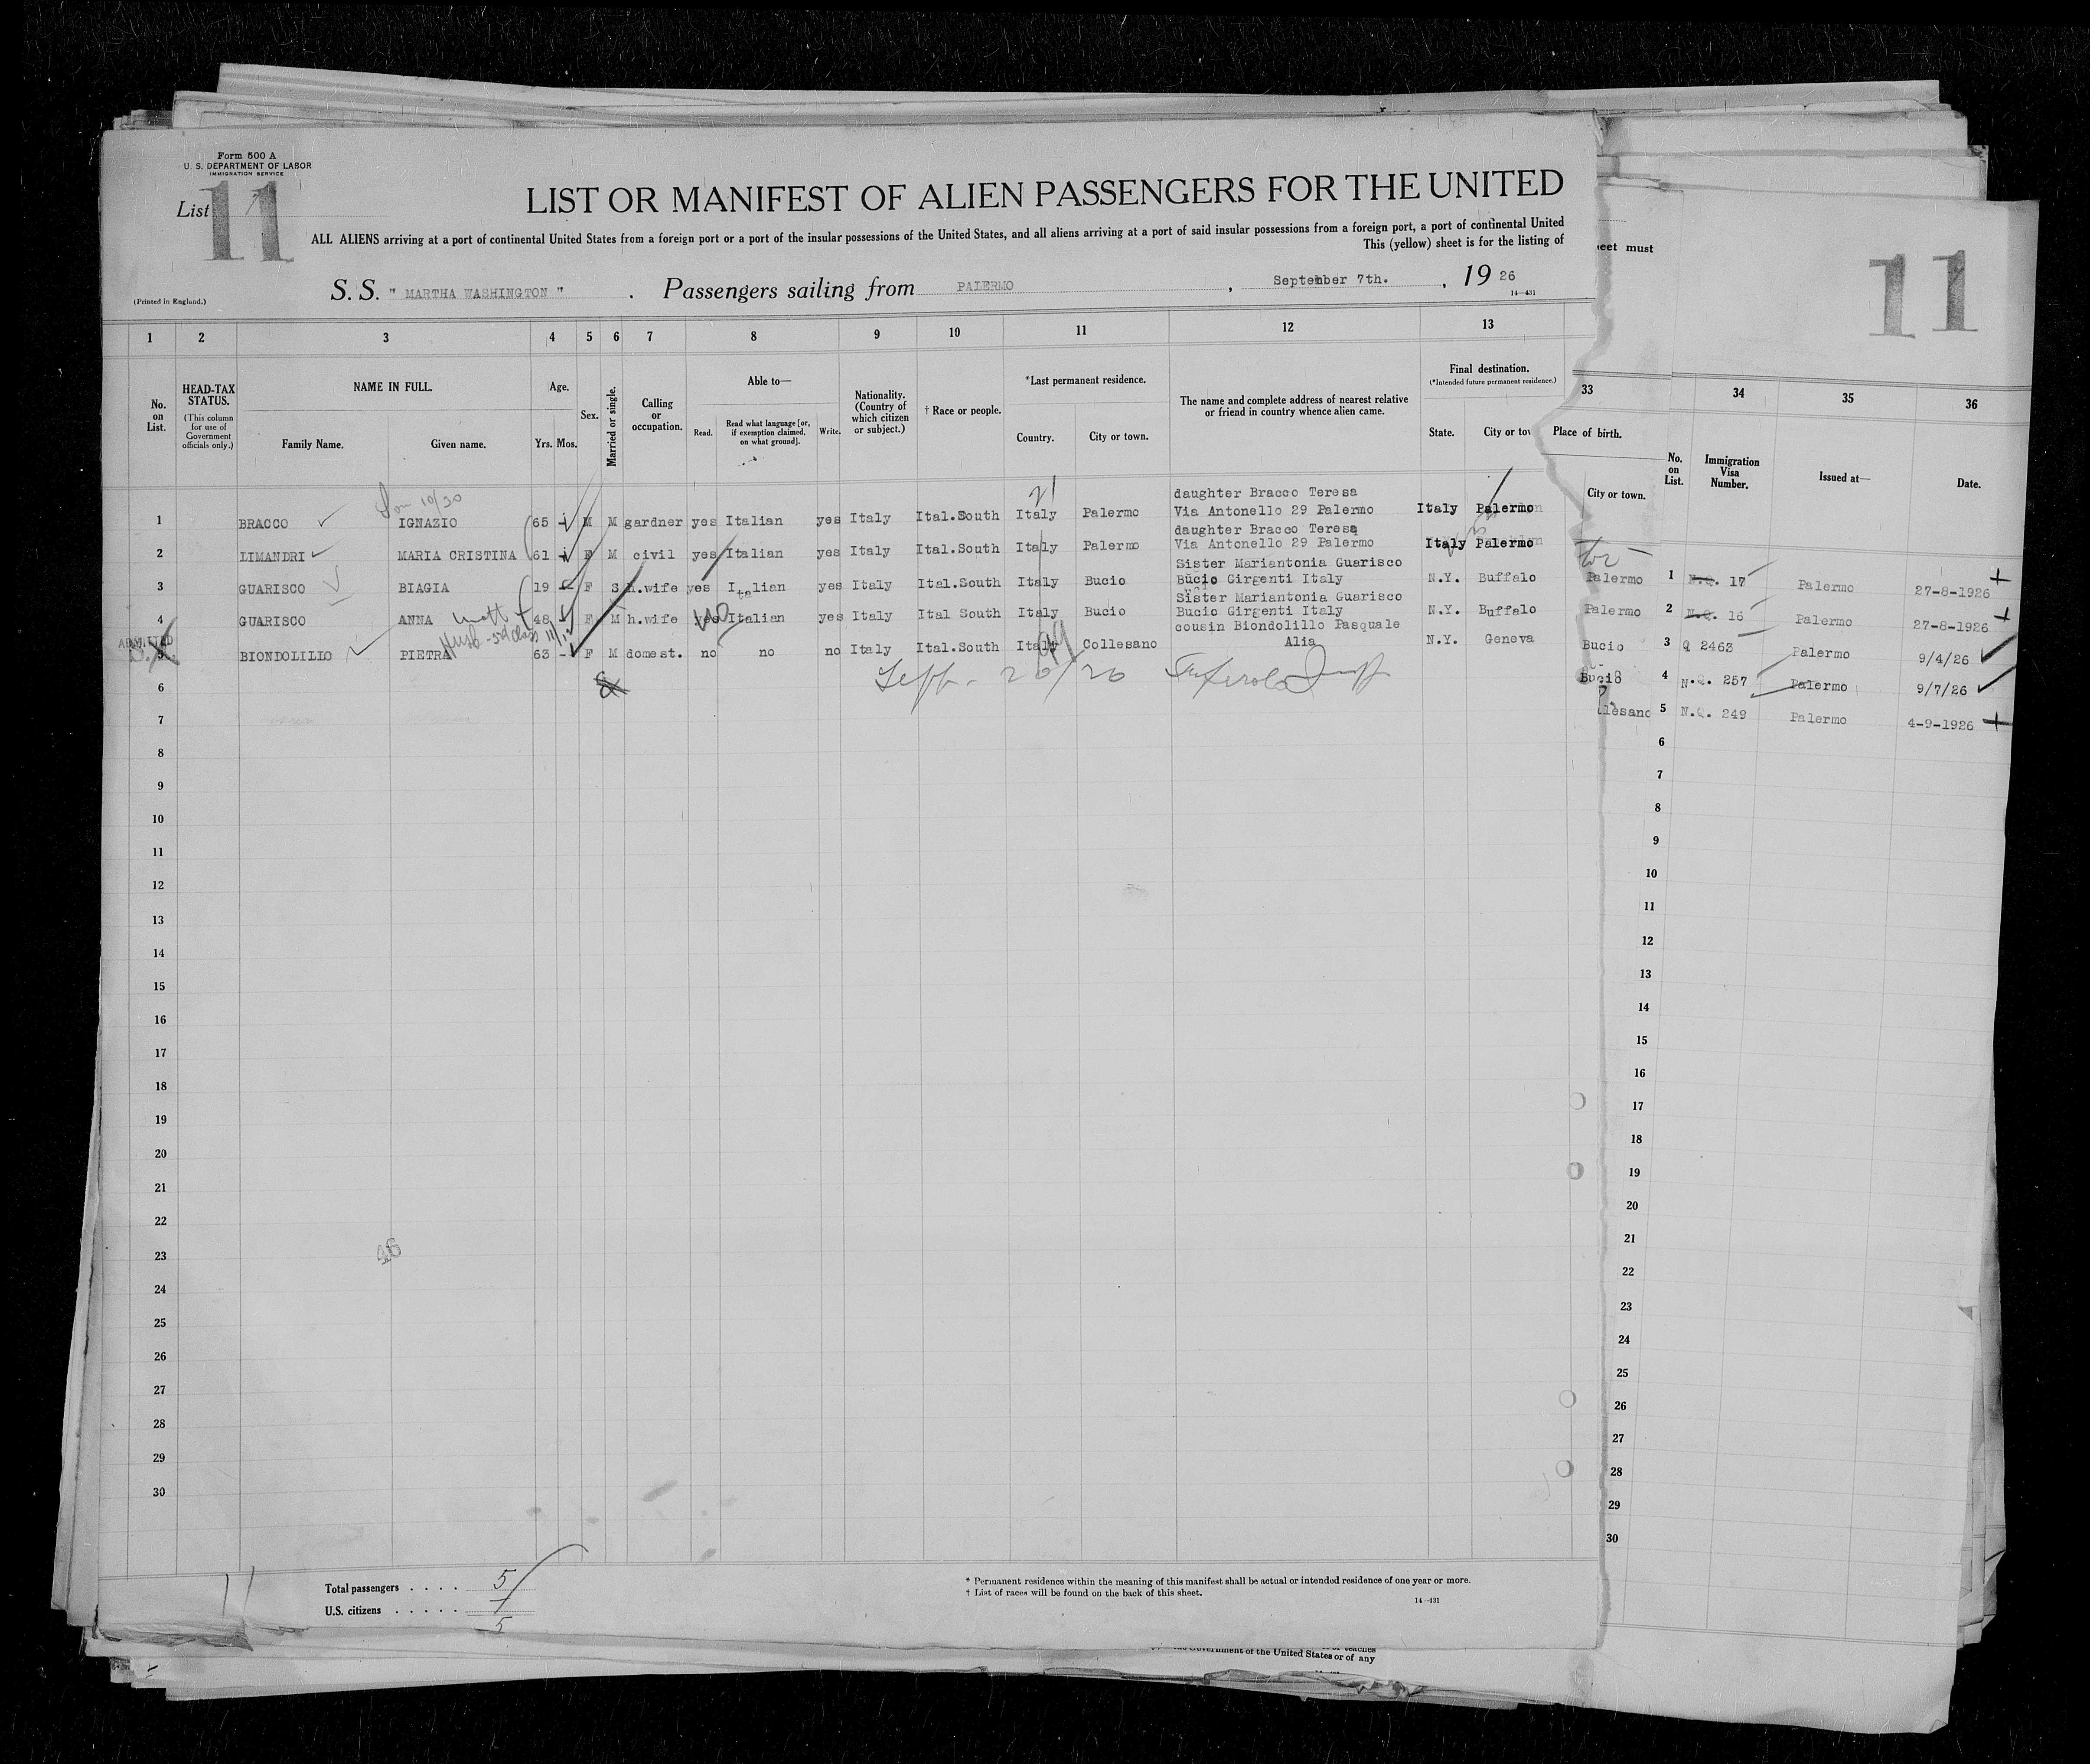 Form 500 A
U. S. DEPARTMENT OF LABOR
IMMIGRATION SERVICE
List 11
LIST OR MANIFEST OF ALIEN PASSENGERS FOR THE UNITED
ALL ALIENS arriving at a port of continental United States from a foreign port or a port of the insular possessions of the United States, and all aliens arriving at a port of said insular possessions from a foreign port, a port of continental United
This (yellow) sheet is for the listing of
eet must
11
(Printed in England.)
S. S. " MARTHA WASHINGTON " . Passengers sailing from PALERMO , September 7th. , 19 26
14—431
1 2 3 4 5 6 7 8 9 10 11 12 13 33 34 35 36
No. on List.
HEAD-TAX STATUS.
(This column for use of Government officials only.)
NAME IN FULL.
Family Name. Given name.
Age.
Yrs. Mos.
Sex.
Married or single.
Calling or occupation.
Able to—
Read. Read what language [or, if exemption claimed, on what ground]. Write.
Nationality. (Country of which citizen or subject.)
† Race or people.
*Last permanent residence.
Country. City or town.
The name and complete address of nearest relative or friend in country whence alien came.
Final destination.
(*Intended future permanent residence.)
State. City or tow
Place of birth.
City or town.
No. on List.
Immigration Visa Number.
Issued at—
Date.
Son 10/20
21
daughter Bracco Teresa
1 BRACCO IGNAZIO 65 M M gardner yes Italian yes Italy Ital.South Italy Palermo Via Antonello 29 Palermo Italy Palermo
daughter Bracco Teresa
2 LIMANDRI MARIA CRISTINA 61 F M civil yes Italian yes Italy Ital.South Italy Palermo Via Antonello 29 Palermo Italy Palermo
Sister Mariantonia Guarisco
3 GUARISCO BIAGIA 19 F S h.wife yes Italian yes Italy Ital.South Italy Bucio Bucio Girgenti Italy N.Y. Buffalo
Sister Mariantonia Guarisco
4 GUARISCO ANNA 48 F M h.wife yes no Italian yes Italy Ital South Italy Bucio Bucio Girgenti Italy N.Y. Buffalo
cousin Biondolillo Pasquale
ADMITTED
5 BIONDOLILLO PIETRA 63 - F M domest. no no no Italy Ital.South Italy Collesano Alia N.Y. Geneva
Sept - 20/26
Palermo 1 N.Q. 17 Palermo 27-8-1926
Palermo 2 N.Q. 16 Palermo 27-8-1926
Bucio 3 Q 2463 Palermo 9/4/26
Bucio 4 N.Q. 257 Palermo 9/7/26
llesano 5 N.Q. 249 Palermo 4-9-1926
6 6
7 7
8 8
9 9
10 10
11 11
12 12
13 13
14 14
15 15
16 16
17 17
18 18
19 19
20 20
21 21
22 22
23 23
46
24 24
25 25
26 26
27 27
28 28
29 29
30 30
11
Total passengers . . . . 5
U.S. citizens . . . . .
5
* Permanent residence within the meaning of this manifest shall be actual or intended residence of one year or more.
† List of races will be found on the back of this sheet.
14—431
Government of the United States or of any